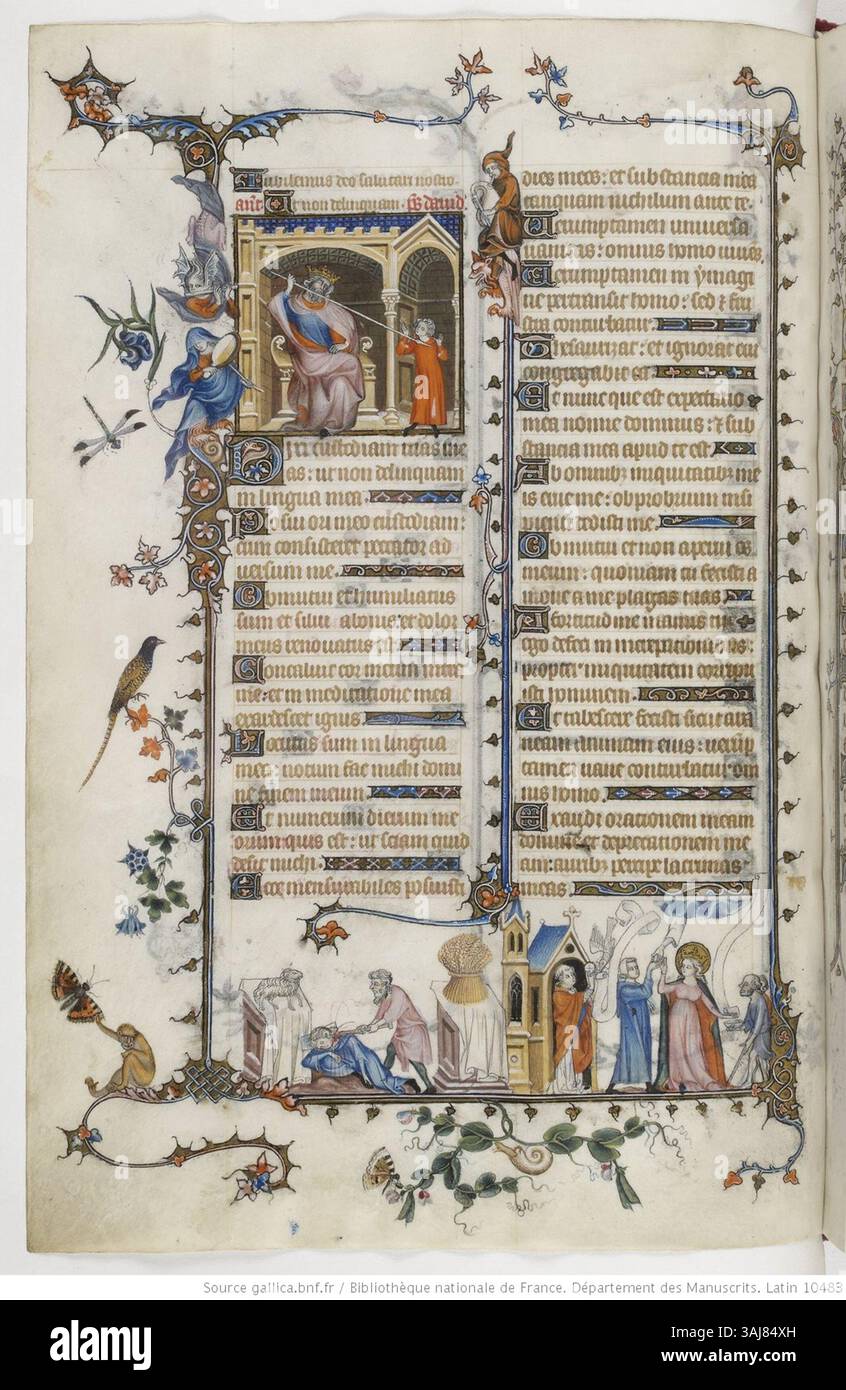 Jubilemus deo salutari nostro.
añt Ut non delinquam. ps dauid
Dixi custodiam uias me
as: ut non delinquam
in lingua mea.
Posui ori meo custodiam:
cum consisteret peccator ad
uersum me.
Obmutui et humiliatus
sum et silui a bonis et dolor
meus renouatus est
Concaluit cor meum intra
me: et in meditatione mea
exardescet ignis
Locutus sum in lingua
mea: notum fac michi domi
ne finem meum
Et numerum dierum me
orum quis est: ut sciam quid
desit michi.
Ecce mensurabiles posuisti
dies meos: et substancia mea
tanquam nichilum ante te.
Uerumptamen uniuersa
uanitas: omnis homo uiuens
Uerumptamen in ymagi
ne pertransit homo: sed et fru
stra conturbatur.
Thesaurizat: et ignorat cui
congregabit ea
Et nunc que est expectatio
mea nonne dominus: et sub
stancia mea apud te est
Ab omnibus iniquitatibus me
is erue me: obprobrium insi
pienti dedisti me
Obmutui et non aperui os
meum: quoniam tu fecisti a
moue a me plagas tuas
A fortitudine manus tue
ego defeci in increpationibus:
propter iniquitatem corripu
isti hominem.
Et tabescere fecisti sicut ara
neam animam eius: uerump
tamen uane conturbatur om
nis homo
Exaudi orationem meam
domine et deprecationem me
am: auribus percipe lacrimas
meas
Source gallica.bnf.fr / Bibliothèque nationale de France. Département des Manuscrits. Latin 10483
alamy
Image ID: 3AJ84XH
www.alamy.com